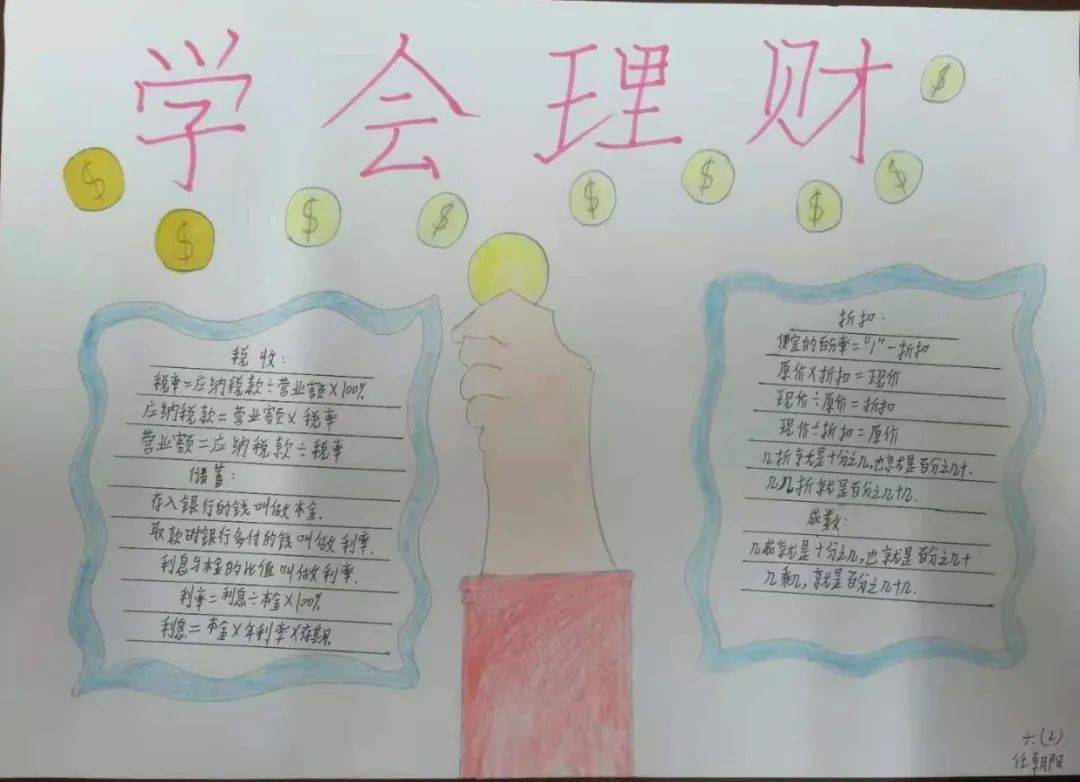 学会理财
$ $ $ $ $ $ $ $ $
税收：
税率=应纳税款÷营业额×100%
应纳税款=营业额×税率
营业额=应纳税款÷税率
储蓄：
存入银行的钱叫做本金.
取款时银行多付的钱叫做利率.
利息与本金的比值叫做利率.
利率=利息÷本金×100%
利息=本金×年利率×存期.
折扣：
便宜的百分率="1"-折扣
原价×折扣=现价
现价÷原价=折扣
现价÷折扣=原价
几折就是十分之几,也就是百分之几十.
几几折就是百分之几十几.
成数：
几成就是十分之几,也就是百分之几十
几乘几,就是百分之几十几.
六.(2)
任朝阳